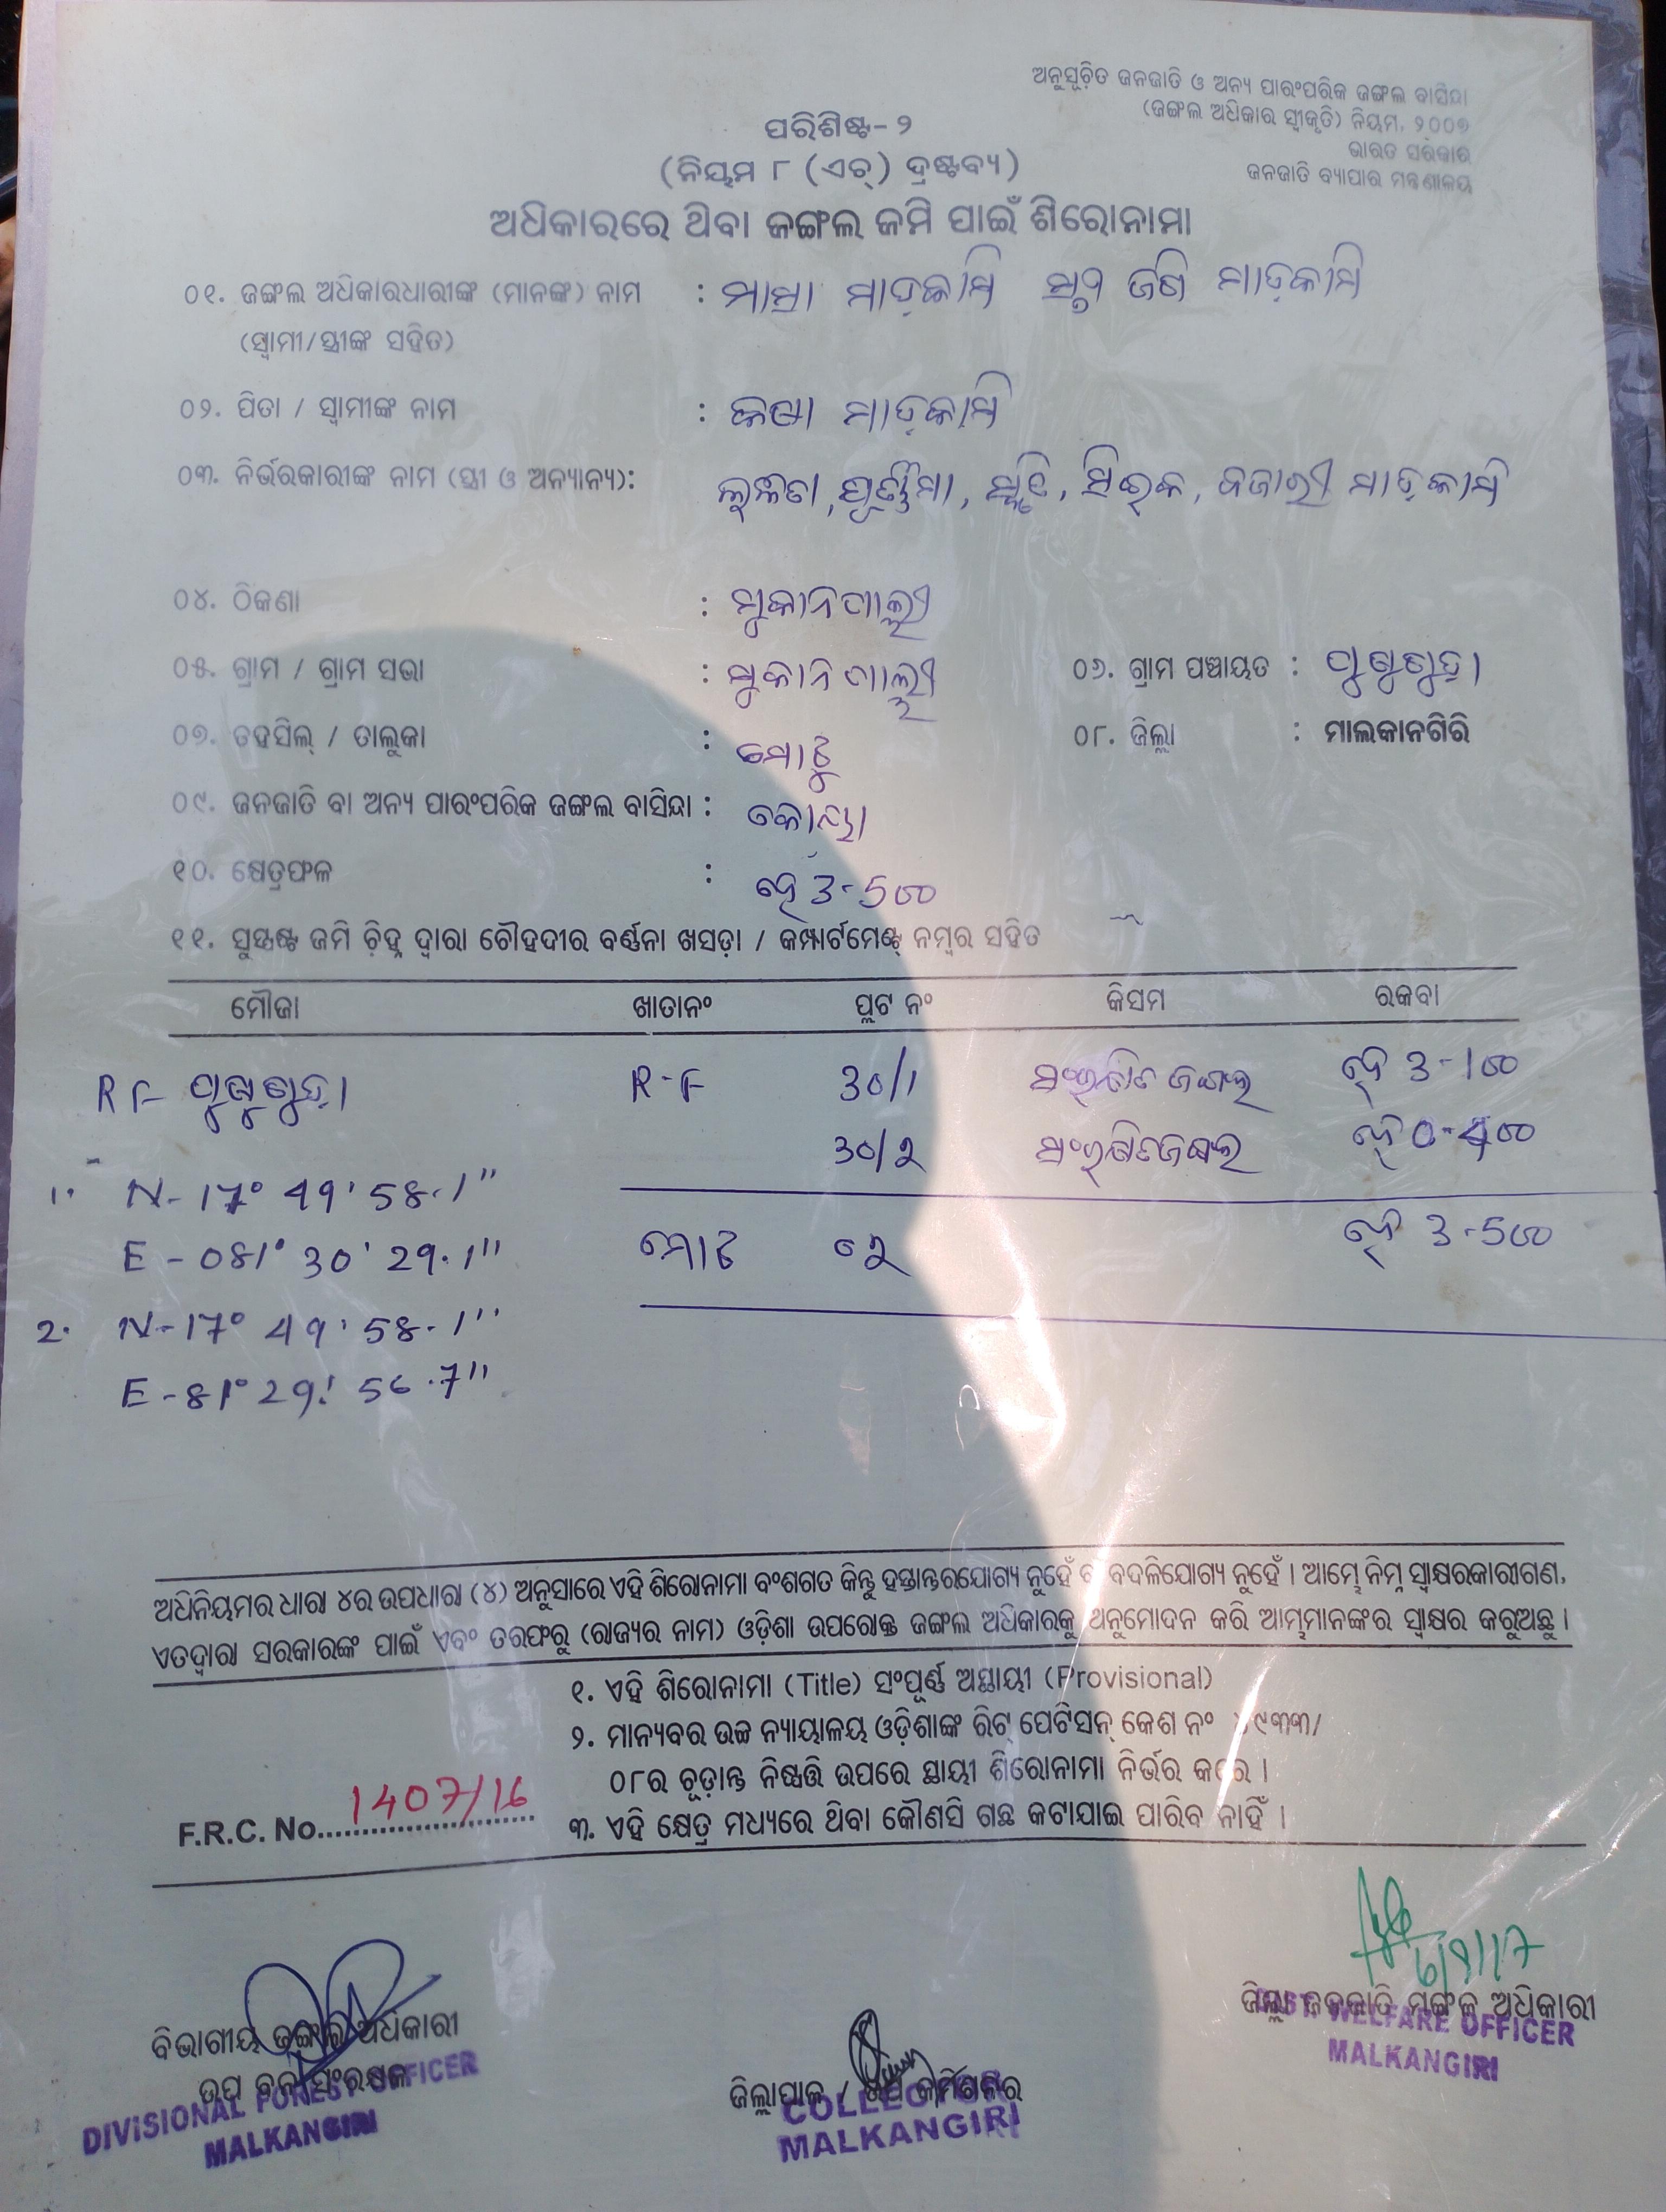 ଅନୁସୂଚିତ ଜନଜାତି ଓ ଅନ୍ୟ ପାରଂପରିକ ଜଙ୍ଗଲ ବାସିନ୍ଦା
(ଜଙ୍ଗଲ ଅଧିକାର ସ୍ୱୀକୃତି) ନିୟମ, ୨୦୦୭
ଭାରତ ସରକାର
ଜନଜାତି ବ୍ୟାପାର ମନ୍ତ୍ରଣାଳୟ
ପରିଶିଷ୍ଟ-୨
(ନିୟମ ୮ (ଏଚ୍) ଦ୍ରଷ୍ଟବ୍ୟ)
ଅଧିକାରରେ ଥିବା ଜଙ୍ଗଲ ଜମି ପାଇଁ ଶିରୋନାମା
୦୧. ଜଙ୍ଗଲ ଅଧିକାରଧାରୀଙ୍କ (ମାନଙ୍କ) ନାମ : ମାଡ଼କାମି ମାଡ଼କାମି
(ସ୍ୱାମୀ/ସ୍ତ୍ରୀଙ୍କ ସହିତ)
୦୨. ପିତା / ସ୍ୱାମୀଙ୍କ ନାମ : ମାଡ଼କାମି
୦୩. ନିର୍ଭରକାରୀଙ୍କ ନାମ (ସ୍ତ୍ରୀ ଓ ଅନ୍ୟାନ୍ୟ): ପୂର୍ଣ୍ଣିମା, ମାଡ଼କାମି
୦୪. ଠିକଣା :
୦୫. ଗ୍ରାମ / ଗ୍ରାମ ସଭା : ୦୬. ଗ୍ରାମ ପଞ୍ଚାୟତ :
୦୭. ତହସିଲ୍ / ତାଲୁକା : ମୋଟୁ ୦୮. ଜିଲ୍ଲା : ମାଲକାନଗିରି
୦୯. ଜନଜାତି ବା ଅନ୍ୟ ପାରଂପରିକ ଜଙ୍ଗଲ ବାସିନ୍ଦା : କୋୟା
୧୦. କ୍ଷେତ୍ରଫଳ : ହେ 3-500
୧୧. ସୁସ୍ପଷ୍ଟ ଜମି ଚିହ୍ନ ଦ୍ୱାରା ଚୌହଦୀର ବର୍ଣ୍ଣନା ଖସଡ଼ା / କମ୍ପାର୍ଟମେଣ୍ଟ୍ ନମ୍ବର ସହିତ
ମୌଜା ଖାତାନଂ ପ୍ଲଟ ନଂ କିସମ ରକବା
RF R-F 30/1 ସଂରକ୍ଷିତ ଜଙ୍ଗଲ ହେ 3-100
30/୨ ସଂରକ୍ଷିତ ଜଙ୍ଗଲ ହେ 0-400
1. N-17° 49' 58.1"
E-081° 30' 29.1" ମୋଟ ୦୨ ହେ 3-500
2. N-17° 49' 58.1"
E-81° 29' 56.7"
ଅଧିନିୟମର ଧାରା ୪ର ଉପଧାରା (୪) ଅନୁସାରେ ଏହି ଶିରୋନାମା ବଂଶଗତ କିନ୍ତୁ ହସ୍ତାନ୍ତରଯୋଗ୍ୟ ନୁହେଁ ବା ବଦଳିଯୋଗ୍ୟ ନୁହେଁ । ଆମ୍ଭେ ନିମ୍ନ ସ୍ୱାକ୍ଷରକାରୀଗଣ,
ଏତଦ୍ଦ୍ୱାରା ସରକାରଙ୍କ ପାଇଁ ଏବଂ ତରଫରୁ (ରାଜ୍ୟର ନାମ) ଓଡ଼ିଶା ଉପରୋକ୍ତ ଜଙ୍ଗଲ ଅଧିକାରକୁ ଅନୁମୋଦନ କରି ଆମ୍ଭମାନଙ୍କର ସ୍ୱାକ୍ଷର କରୁଅଛୁ ।
୧. ଏହି ଶିରୋନାମା (Title) ସଂପୂର୍ଣ୍ଣ ଅସ୍ଥାୟୀ (Provisional)
୨. ମାନ୍ୟବର ଉଚ୍ଚ ନ୍ୟାୟାଳୟ ଓଡ଼ିଶାଙ୍କ ରିଟ୍ ପେଟିସନ୍ କେଶ ନଂ
୦୮ର ଚୂଡ଼ାନ୍ତ ନିଷ୍ପତ୍ତି ଉପରେ ସ୍ଥାୟୀ ଶିରୋନାମା ନିର୍ଭର କରେ ।
F.R.C. No. 1407/16
୩. ଏହି କ୍ଷେତ୍ର ମଧ୍ୟରେ ଥିବା କୌଣସି ଗଛ କଟାଯାଇ ପାରିବ ନାହିଁ ।
ବିଭାଗୀୟ ଜଙ୍ଗଲ ଅଧିକାରୀ
ଉପ ବନ ସଂରକ୍ଷକ
DIVISIONAL FOREST OFFICER
MALKANGIRI
ଜିଲ୍ଲାପାଳ / କମିଶନର
COLLECTOR
MALKANGIRI
ଜିଲ୍ଲା ଜନଜାତି ମଙ୍ଗଳ ଅଧିକାରୀ
DIST. WELFARE OFFICER
MALKANGIRI